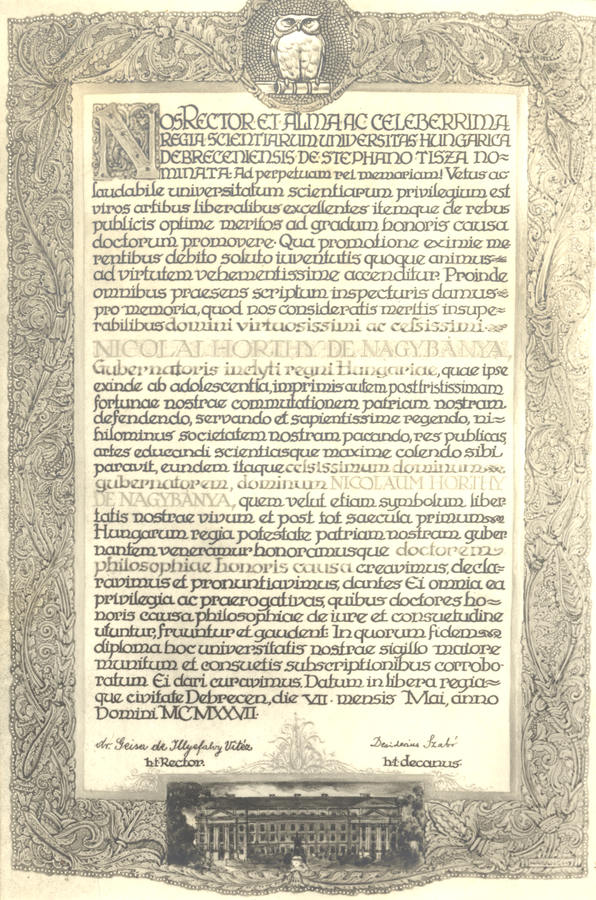 NOS RECTOR ET ALMA AC CELEBERRIMA
REGIA SCIENTIARUM UNIVERSITAS HUNGARICA
DEBRECENIENSIS DE STEPHANO TISZA NO=
MINATA: Ad perpetuam rei memoriam! Vetus ac
laudabile universitatum scientiarum privilegium est
viros artibus liberalibus excellentes itemque de rebus
publicis optime meritos ad gradum honoris causa
doctorum promovere. Qua promotione eximie me
rentibus debito soluto iuventutis quoque animus
ad virtutem vehementissime accenditur. Proinde
omnibus praesens scriptum inspecturis damus
pro memoria, quod nos consideratis meritis insupe-
rabilibus domini virtuosissimi ac celsissimi
NICOLAI HORTHY DE NAGYBÁNYA,
Gubernatoris inclyti regni Hungariae, quae ipse
exinde ab adolescentia, imprimis autem post tristissimam
fortunae nostrae commutationem patriam nostram
defendendo, servando et sapientissime regendo, ni=
hilominus societatem nostram pacando, res publicas,
artes educandi scientiasque maxime colendo sibi
paravit, eundem itaque celsissimum dominum
gubernatorem, dominum NICOLAUM HORTHY
DE NAGYBÁNYA, quem velut etiam symbolum liber
tatis nostrae vivum et post tot saecula primum
Hungarum regia potestate patriam nostram guber
nantem veneramur honoramusque doctorem
philosophiae honoris causa creavimus, decla-
ravimus et pronuntiavimus, dantes Ei omnia ea
privilegia ac praerogativas, quibus doctores ho=
noris causa philosophiae de iure et consuetudine
utuntur, fruuntur et gaudent. In quorum fidem
diploma hoc universitatis nostrae sigillo maiore
munitum et consuetis subscriptionibus corrobo-
ratum Ei dari curavimus. Datum in libera regia=
que civitate Debrecen, die VII. mensis Mai, anno
Domini MCMXXVII.
Dr. Geisa de Illyefalvy Vitéz
h.t. Rector.
Desiderius Szabó
h.t. decanus.